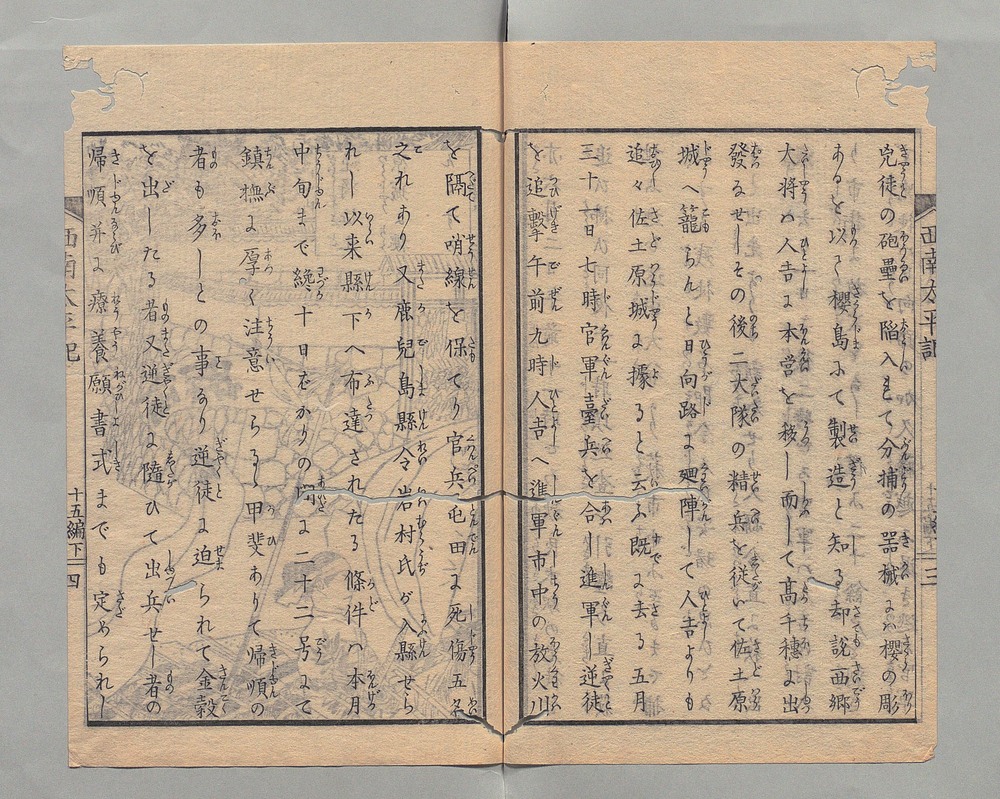 西南太平記
十五編下 三
兇徒の砲壘を陥入れて分捕の器械には櫻の彫
あるを以て櫻島にて製造と知る却説西郷
大将ハ人吉に本営を移し而して髙千穂に出
發なせしその後二大隊の精兵を従いて佐土原
城へ籠らんと日向路に廻陣して人吉よりも
追々佐土原城に據ると云ふ既に去る五月
三十日七時官軍臺兵を合し進軍し逆徒
を追擊午前九時人吉へ進軍市中の放火川
を隔て哨線を保てり官兵屯田に死傷五名
之れあり又鹿兒島縣令岩村氏が入縣せら
れし以来縣下へ布達されたる條件ハ本月
中旬まで纔十日ばかりの間に二十二号にて
鎮撫に厚く注意せらるゝ甲斐ありて帰順の
者も多しとの事なり逆徒に迫られて金穀
を出したる者又逆徒に隨ひて出兵せし者の
帰順并に療養願書式までも定められし
西南太平記
十五編下 四